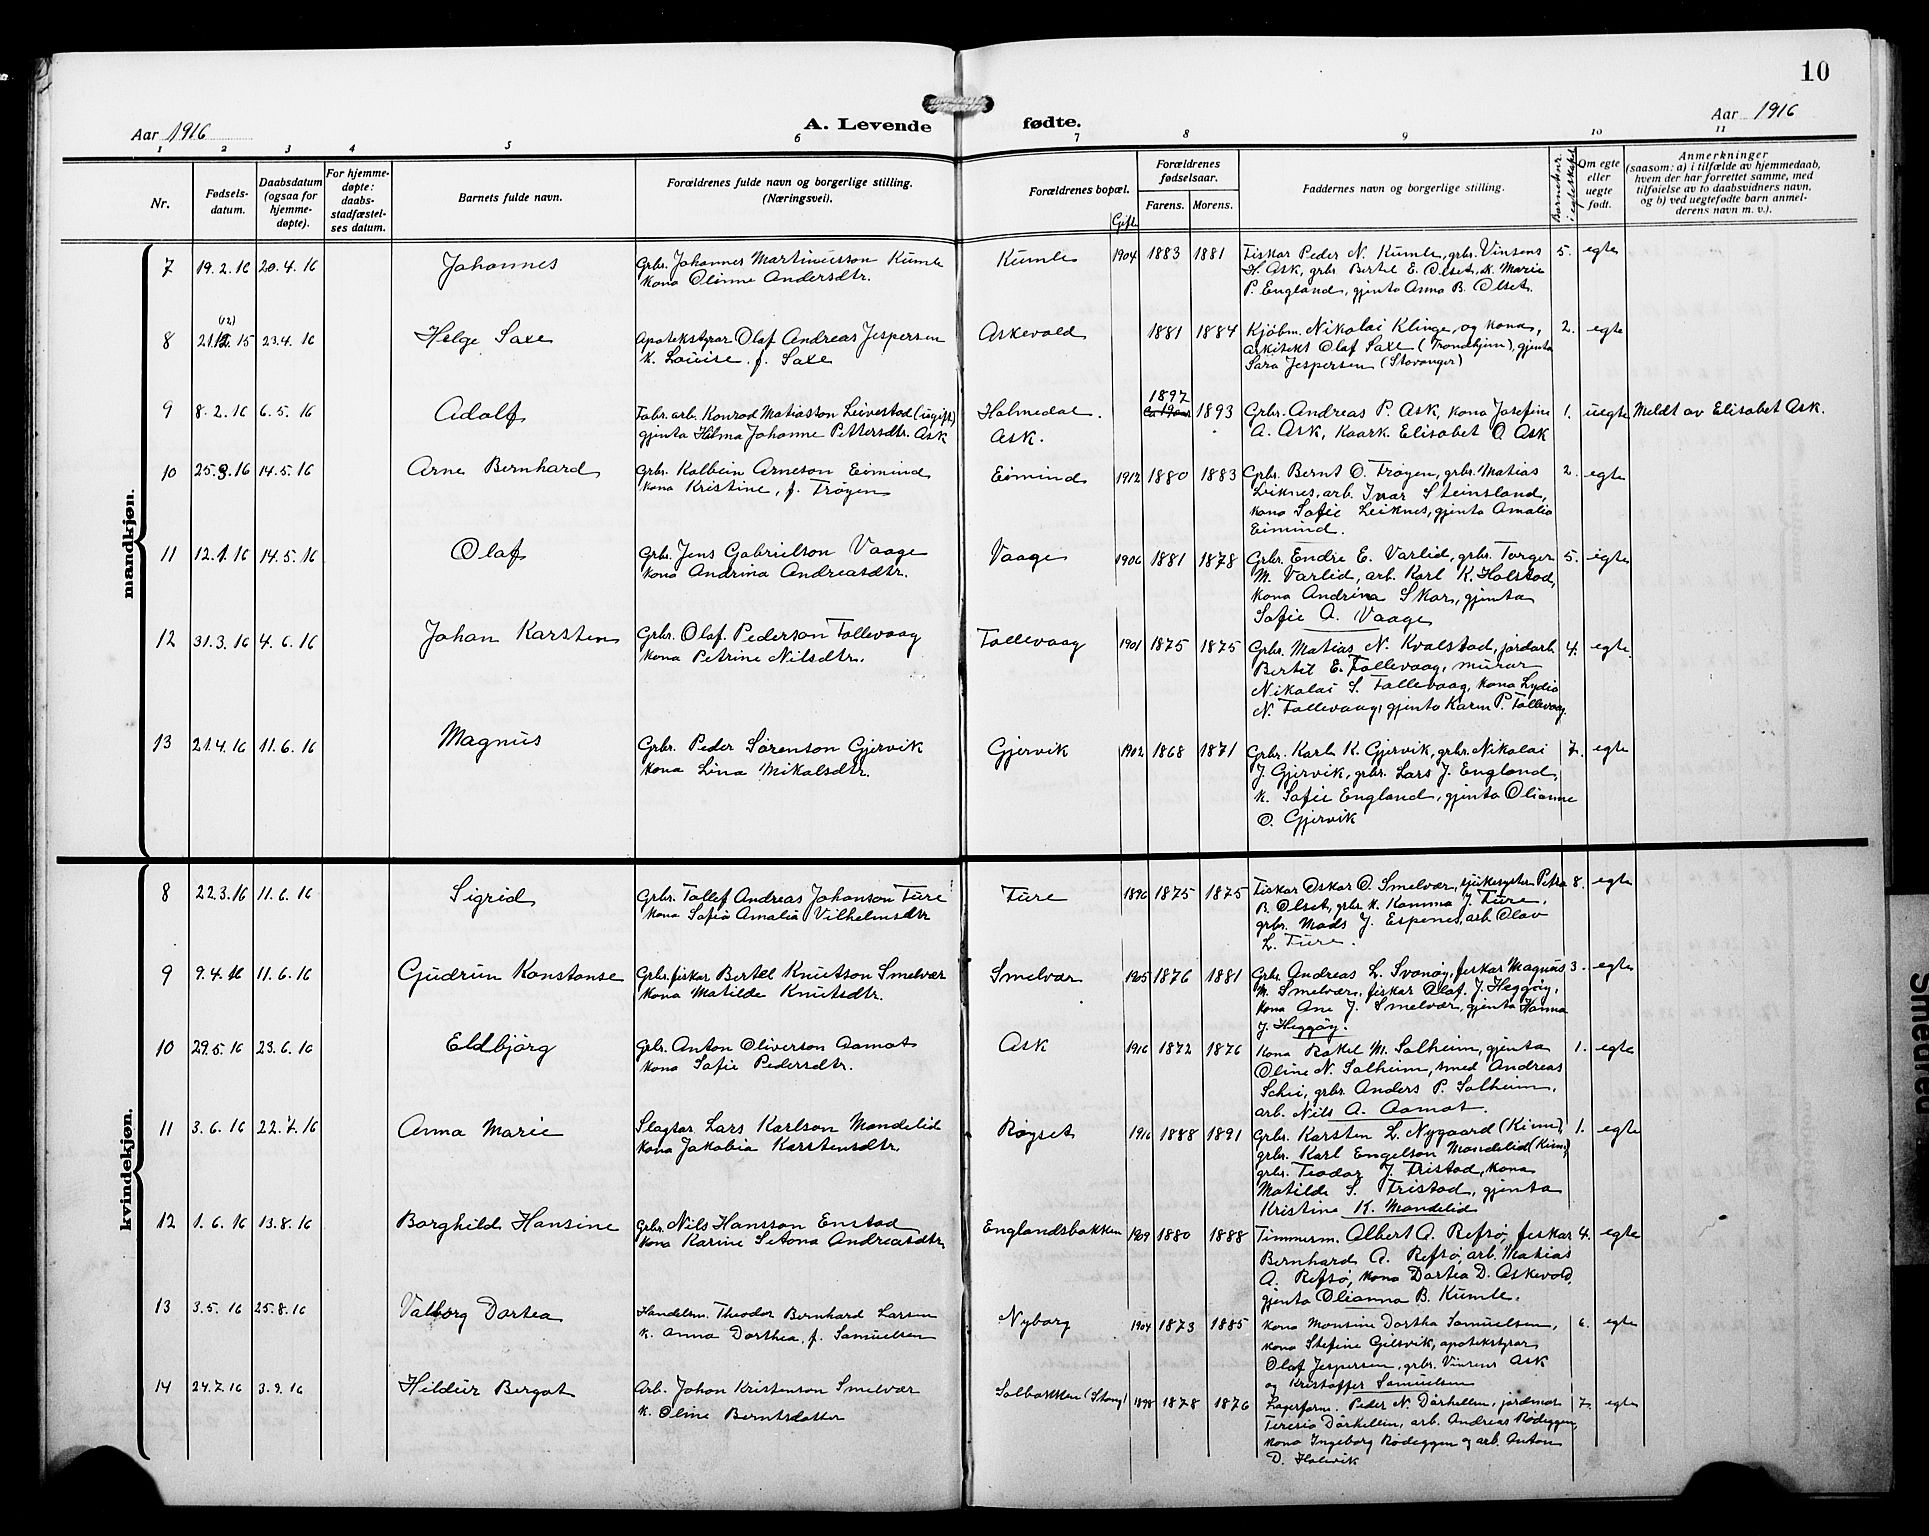 10
Aar 1916 A. Levende fødte. Aar 1916
1 2 3 4 5 6 7 8 9 10 11
Nr.
Fødsels-
datum.
Daabsdatum
(ogsaa for
hjemme-
døpte).
For hjemme-
døpte:
daabs-
stadfæstel-
ses datum.
Barnets fulde navn.
Forældrenes fulde navn og borgerlige stilling.
(Næringsvei).
Forældrenes bopæl.
Gift.
Forældrenes
fødselsaar.
Farens. Morens.
Faddernes navn og borgerlige stilling.
Barnets nr.
i egteskapet
Om egte
eller
uegte
født.
Anmerkninger
(saasom: a) i tilfælde av hjemmedaab,
hvem der har forrettet samme, med
tilføielse av to daabsvidners navn,
og b) ved uegtefødte barn anmel-
derens navn m. v.).
mandkjøn.
7 19.2.16 20.4.16 Johannes
Grbr. Johannes Martinusson Kumle
Kona Olinne Andersdtr.
Kumle 1904 1883 1881
Fiskar Peder N. Kumle, grbr. Vinsens
H. Ask, grbr Bertel E. Olset, k. Marie
P. England, gjenta Anna B. Olset.
5. egte
(12)
8 21.12.15 23.4.16 Helge Saxe
Apotekstyrar Olaf Andreas Jespersen
k. Louise, f. Saxe
Askevold 1881 1884
Kjøbm. Nikolai Klinge og kona,
arkitekt Olaf Saxe (Trondhjem), gjenta
Sara Jespersen (Stavanger)
2. egte
9 8.2.16 6.5.16 Adolf
Fabr.arb. Konrad Matiasson Leivestad (ugift)
gjenta Hilma Johanne Pettersdtr. Ask
Holmedal.
Ask.
1897
1893
Grbr. Andreas P. Ask, kona Josefine
A. Ask, Kaark. Elisabet O Ask
1. uegte Meldt av Elisabet Ask.
10 25.3.16 14.5.16 Arne Bernhard
Grbr. Kolbein Arneson Eimind
Kona Kristine, f. Trøyen
Eimind 1912 1880 1883
Grbr. Bernt O. Trøyen, grbr. Matias
Leiknes, arb. Ivar Steinsland,
kona Sofie Leiknes, gjenta Amalia
Eimind.
2. egte
11 12.1.16 14.5.16 Olaf
Grbr. Jens Gabrielson Vaage
Kona Andrina Andreasdtr.
Vaage 1906 1881 1878
Grbr. Endre E. Varlid, grbr. Torger
M. Varlid, arb. Karl K. Holstad,
kona Andrina Skar, gjenta
Sofie A. Vaage
5. egte
12 31.3.16 4.6.16 Johan Karsten
Grbr. Olaf Pederson Tollevaag
Kona Petrine Nilsdtr.
Tollevaag 1901 1875 1875
Grbr. Matias N. Kvalstad, jordarb.
Bertil E. Tollevaag, murar
Nikolai S. Tollevaag, kona Lydia
N. Tollevaag, gjenta Karen P. Tollevaag.
4. egte.
13 21.4.16 11.6.16 Magnus
Grbr. Peder Sørenson Gjervik
Kona Lina Mikalsdtr.
Gjervik 1902 1868 1871
Grbr. Karl K. Gjervik, grbr. Nikolai
J. Gjervik, grbr. Lars J. England,
k. Sofie England, gjenta Olianne
O. Gjervik
7. egte
kvindekjøn.
8 22.3.16 11.6.16 Sigrid
Grbr. Tollef Andreas Johanson Fure
Kona Sofia Amalia Vilhelmsdtr
Fure 1896 1875 1875
Fiskar Oskar O. Smelvær, sjukesyster Petra
B. Olset, grbr. k. Kamma J. Fure,
grbr. Mads J. Espenes, arb. Olav
L. Fure.
8. egte
9 9.4.16 11.6.16 Gudrun Konstanse
Grbr. fiskar Bertel Knutson Smelvær
Kona Matilde Knutsdtr.
Smelvær 1905 1876 1881
Grbr. Andreas L. Svanøy, fiskar Magnus
M. Smelvær, fiskar Olaf J. Heggøy,
kona Ane J. Smelvær, gjenta Hanna
J. Heggøy.
3. egte
10 29.5.16 23.6.16 Eldbjørg
Grbr. Anton Oliverson Aamot
Kona Sofie Pedersdtr.
Ask 1916 1872 1876
Kona Rakel M. Solheim, gjenta
Oline N. Solheim, smed Andreas
Schei, grbr. Anders P. Solheim,
arb. Nils A. Aamot.
1. egte
11 3.6.16 22.7.16 Anna Marie
Slagtar Lars Karlson Mandelid
Kona Jakobia Karstensdtr.
Røyset 1916 1888 1891
Grbr. Karsten L. Nygaard (Kinn),
grbr. Karl Engelson Mandelid (Kinn)
grbr. Teodor J. Tristad, kona
Matilde S. Tristad, gjenta
Kristine K. Mandelid
1. egte
12 1.6.16 13.8.16 Borghild Hansine
Grbr. Nils Hansson Enstad
Kona Karine Setona Andreasdtr.
Englandsbakken 1909 1880 1888
Timmerm. Albert A. Refsø, fiskar
Bernhard A. Refsø, arb. Matias
A. Refsø, kona Dortea D. Askevold,
gjenta Olianna B. Kumle.
4. egte
13 3.5.16 25.8.16 Valborg Dortea
Handelsm. Theodor Bernhard Larsen
k. Anna Dorthea, f. Samuelsen
Nyborg 1904 1873 1885
Kona Monsine Dorthea Samuelsen,
kona Stefine Gilsvik, apotekstyrar
Olaf Jespersen, grbr. Vinsens Ask
og Kristoffer Samuelsen
6. egte
14 24.7.16 3.9.16 Hildur Bergot
Arb. Johan Kristenson Smelvær
k. Oline Berntsdatter
Solbakken (Stong) 1898 1878 1876
Lagerform. Peder N. Dørhellen, jordmor
Teresia Dørhellen, arb. Andreas Rødeggen,
kona Ingeborg Rødeggen og arb. Anton
D. Holevik
7. egte